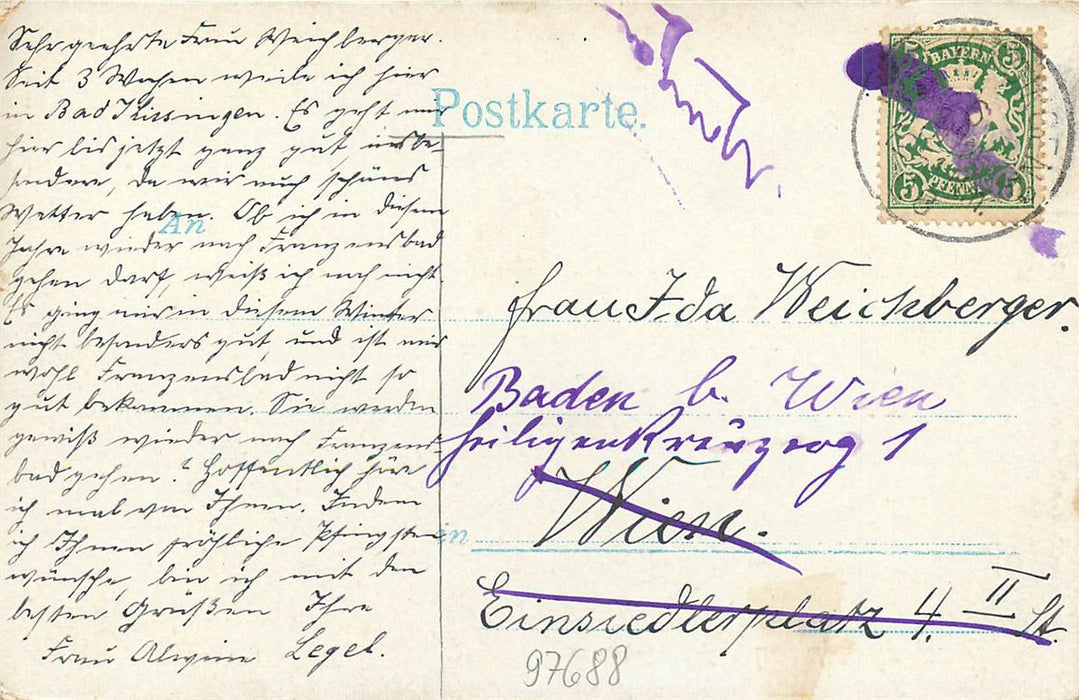 Sehr geehrte Frau Weichberger.
Seit 3 Wochen weile ich hier
in Bad Kissingen. Es geht mir
hier bis jetzt ganz gut, insbe-
sondere, da wir auch schönes
Wetter haben. Ob ich in diesem
Jahre wieder nach Franzensbad
gehen darf, weiß ich noch nicht.
Es ging mir in diesem Winter
nicht besonders gut, und ist mir
wohl Franzensbad nicht so
gut bekommen. Sie werden
gewiß wieder nach Franzens-
bad gehen? Hoffentlich höre
ich mal von Ihnen. Indem
ich Ihnen fröhliche Pfingsten
wünsche, bin ich mit den
besten Grüßen Ihre
Frau Alwine Legel.
Postkarte.
An
in
BAYERN
5 5
5 5
PFENNIG
Frau Ida Weichberger.
Baden b. Wien
Heiligenkreuzerg 1
Wien.
Einsiedlerplatz 4. II St.
97688